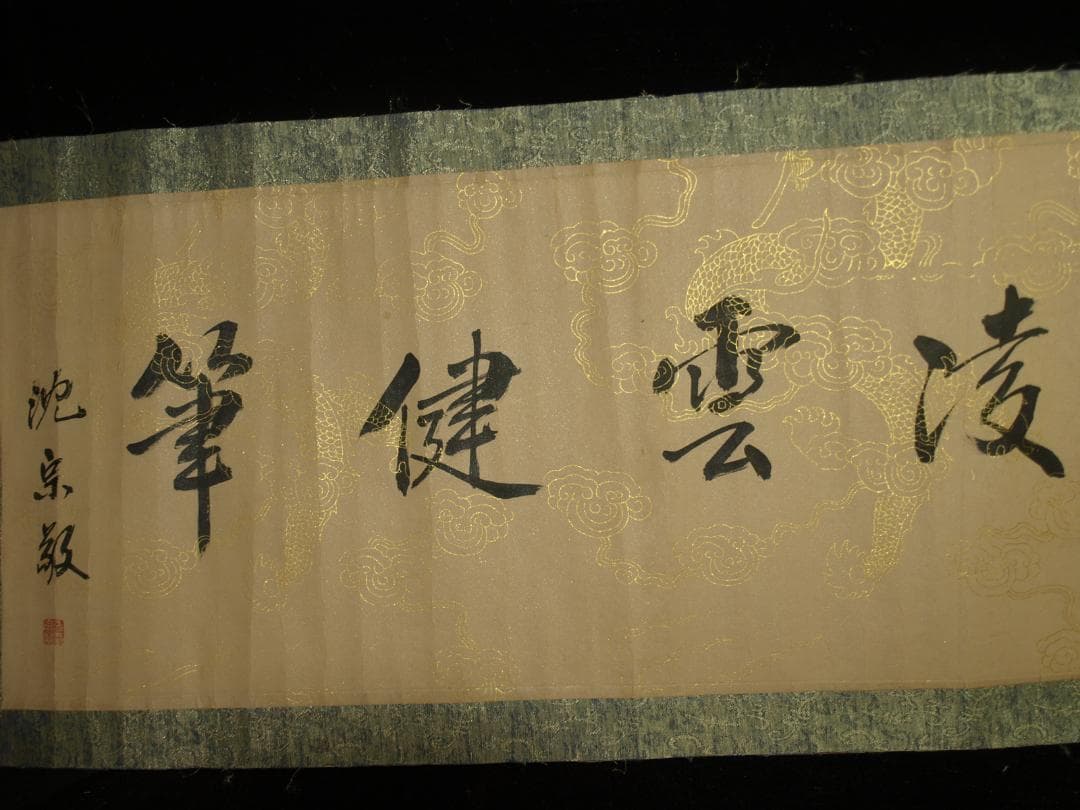 凌雲健筆
沈宗敬